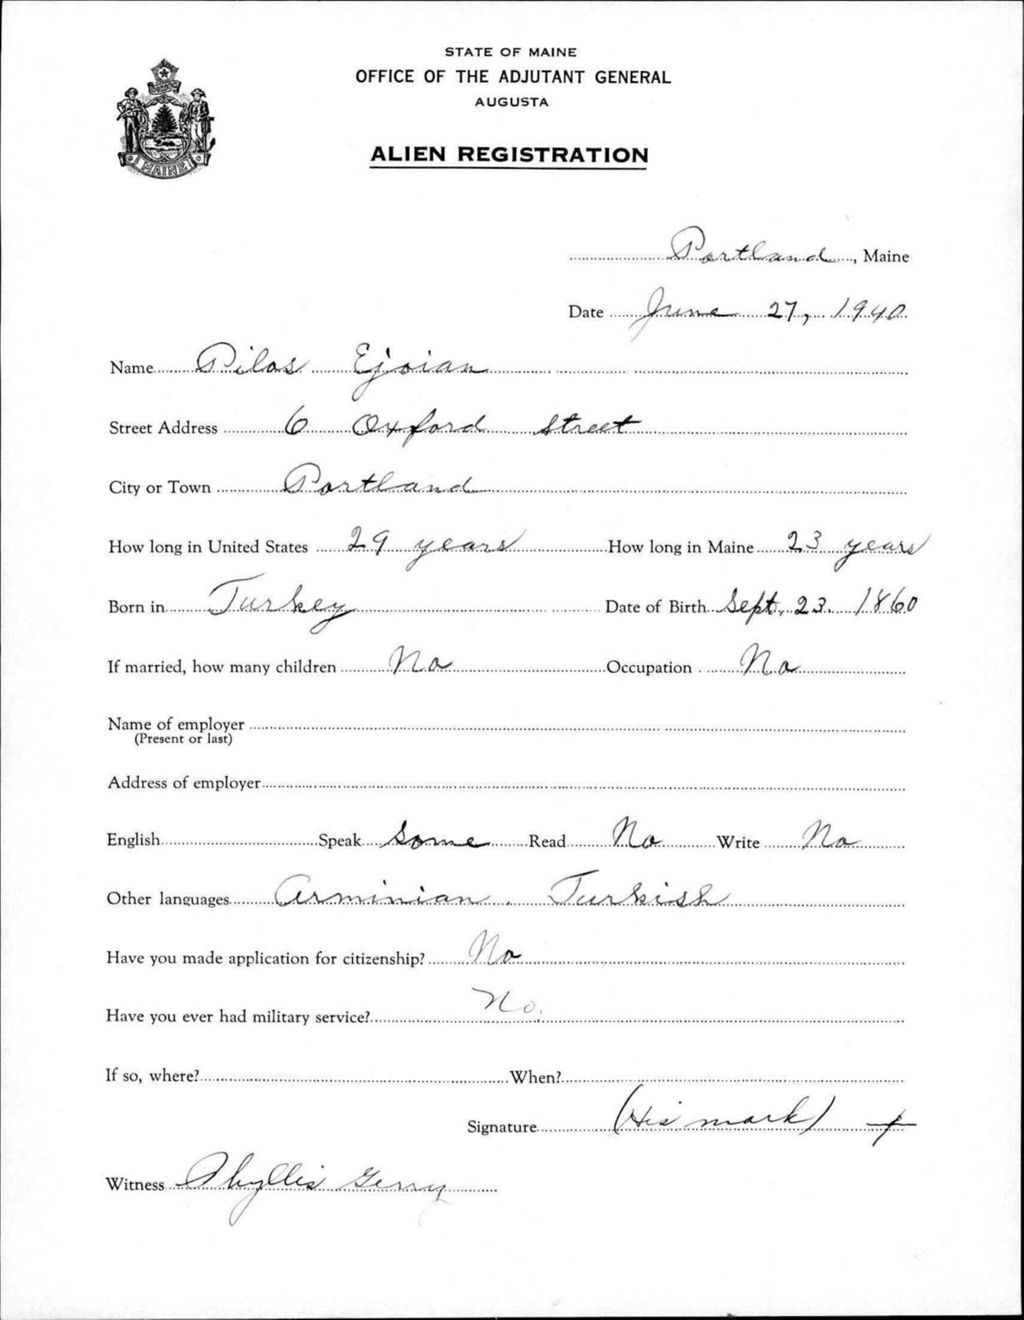 STATE OF MAINE
OFFICE OF THE ADJUTANT GENERAL
AUGUSTA
ALIEN REGISTRATION
MAINE
Portland, Maine
Date June 27, 1940
Name Pilos Ejoian
Street Address 6 Oxford Street
City or Town Portland
How long in United States 29 years How long in Maine 23 years
Born in Turkey Date of Birth Sept. 23. 1860
If married, how many children No Occupation No
Name of employer
(Present or last)
Address of employer
English Speak Some Read No Write No
Other languages Arminian. Turkish
Have you made application for citizenship? No
Have you ever had military service? No.
If so, where? When?
Signature (His mark) +
Witness Phyllis Gerry